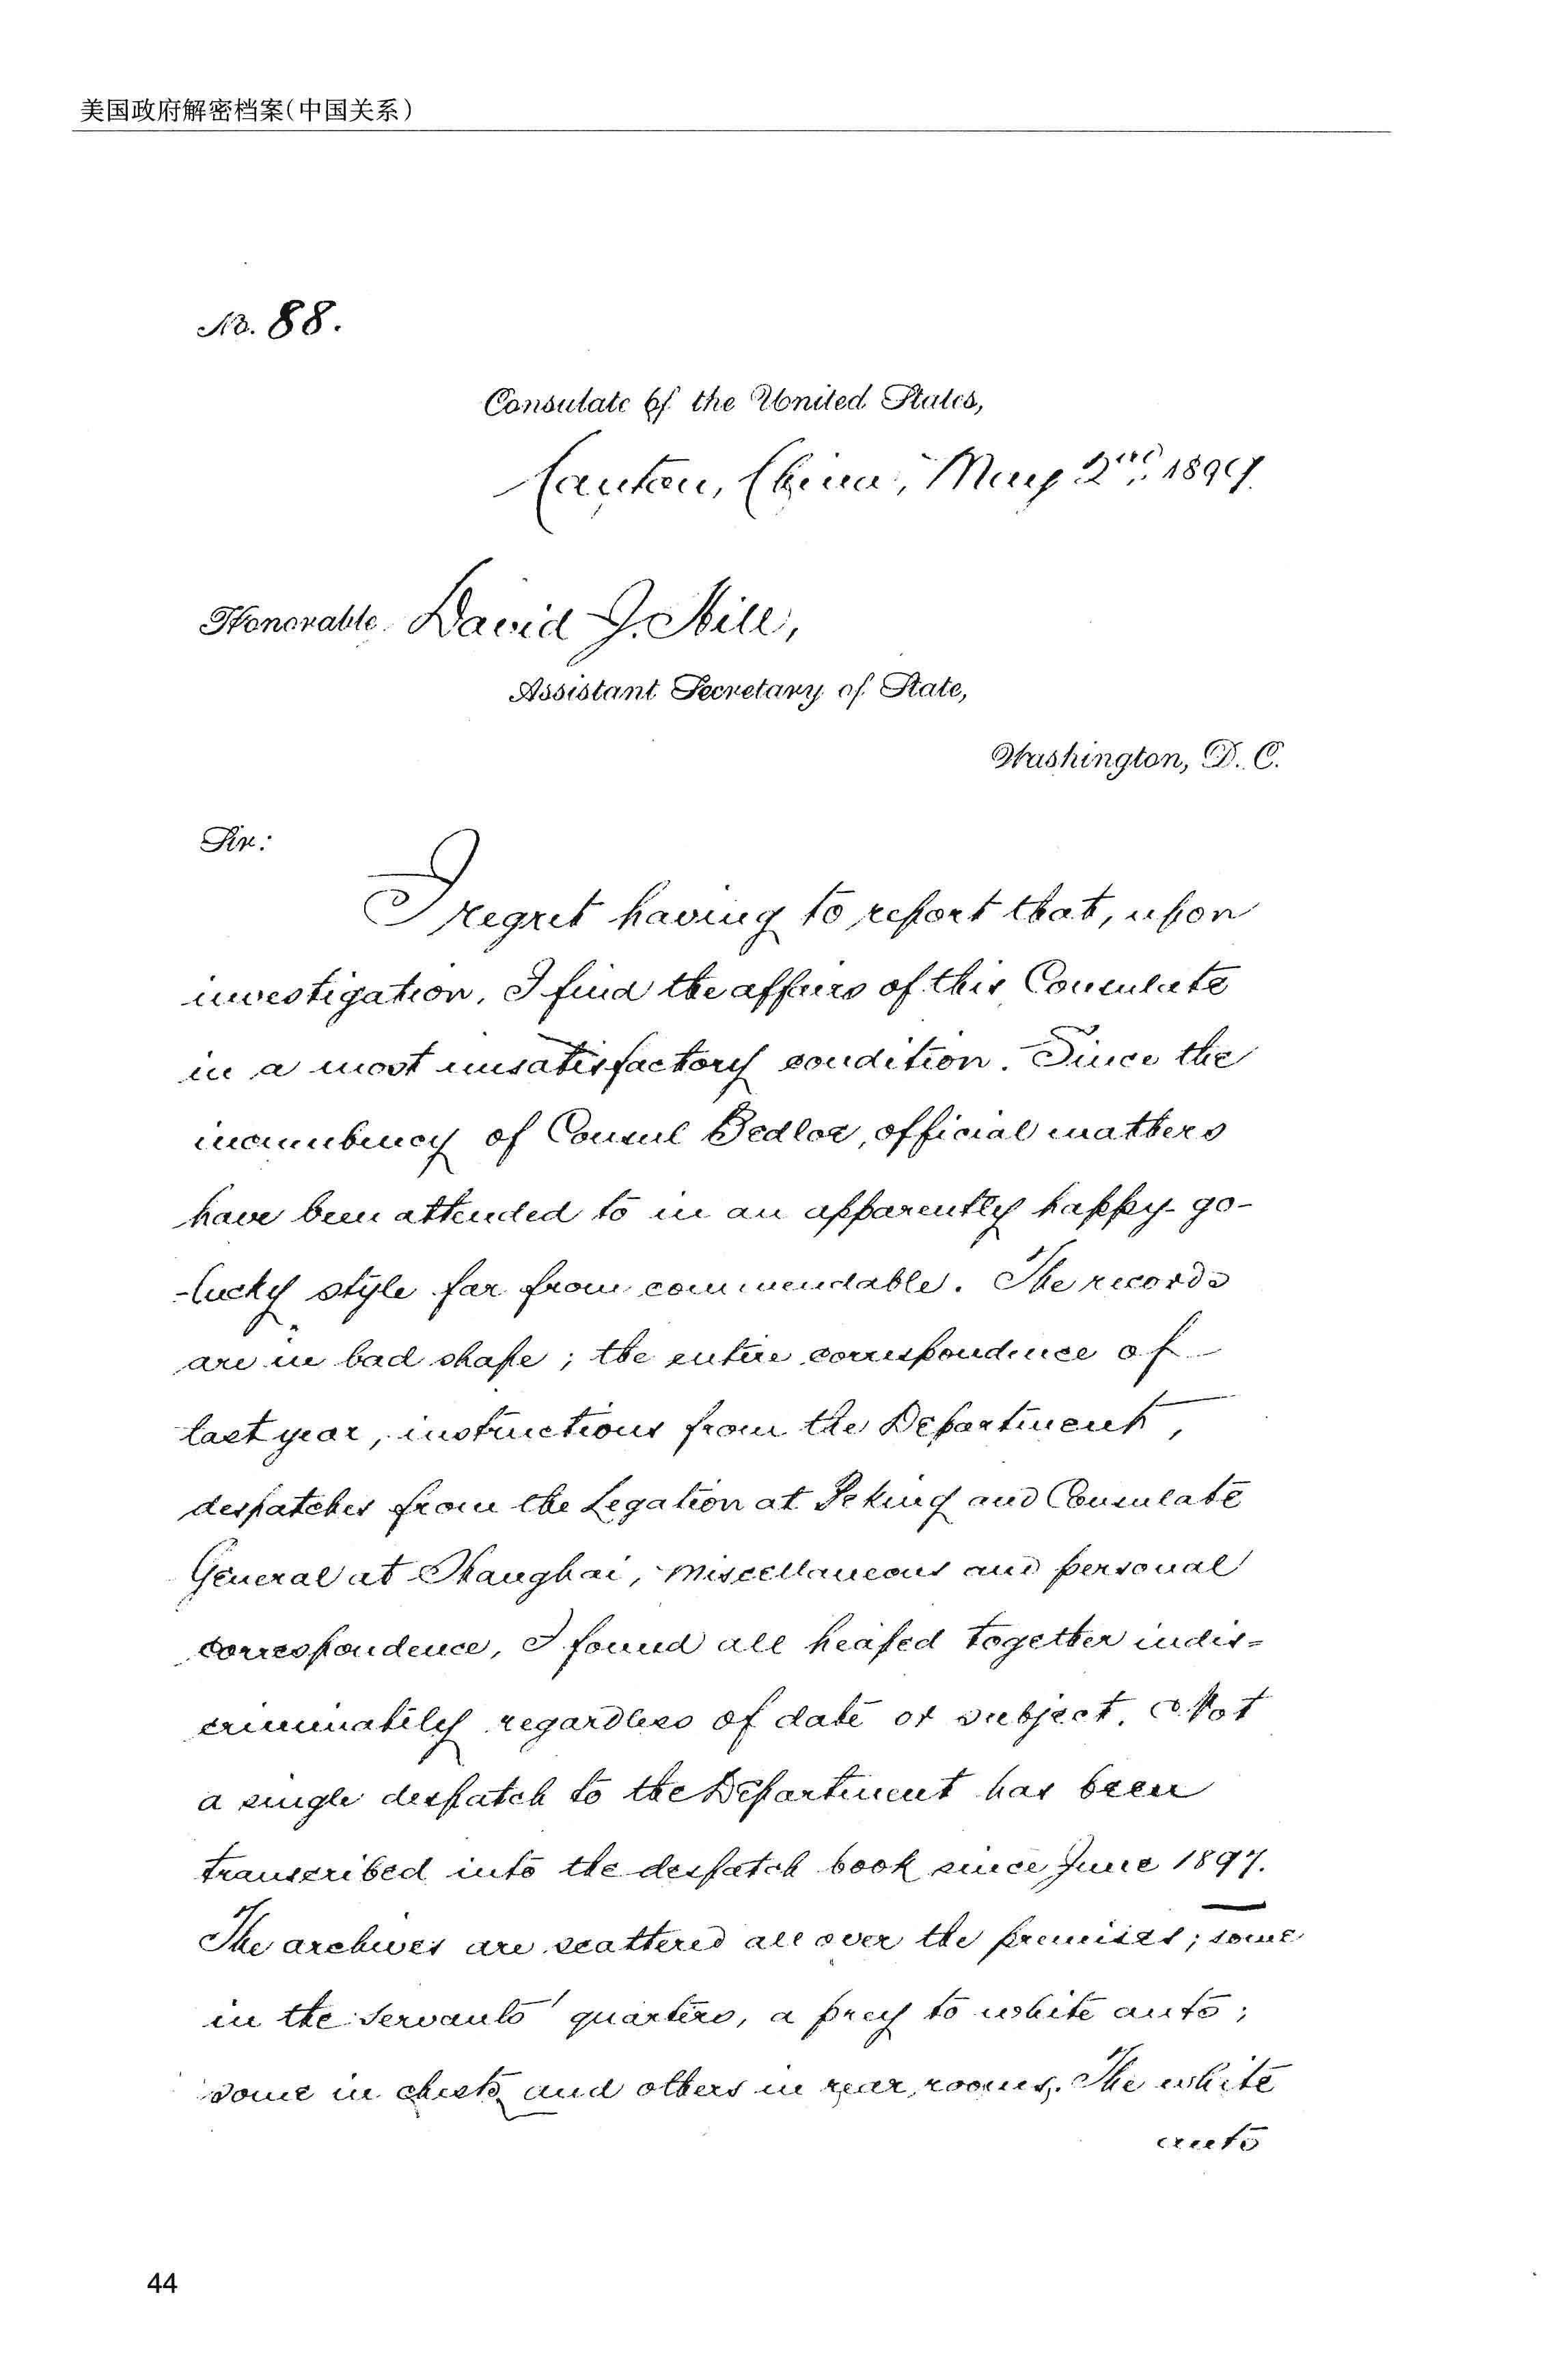 美国政府解密档案(中国关系)
No. 88.
Consulate of the United States,
Canton, China, May 2nd, 1899.
Honorable David J. Hill,
Assistant Secretary of State,
Washington, D. C.
Sir:
I regret having to report that, upon
investigation, I find the affairs of this Consulate
in a most unsatisfactory condition. Since the
incumbency of Consul Bedloe, official matters
have been attended to in an apparently happy-go-
-lucky style far from commendable. The records
are in bad shape; the entire correspondence of
last year, instructions from the Department,
despatches from the Legation at Peking and Consulate
General at Shanghai, miscellaneous and personal
correspondence, I found all heaped together indis=
criminately regardless of date or subject. Not
a single despatch to the Department has been
transcribed into the despatch book since June 1897.
The archives are scattered all over the premises; some
in the servants' quarters, a prey to white ants;
some in chests and others in rear rooms. The white
ants
44